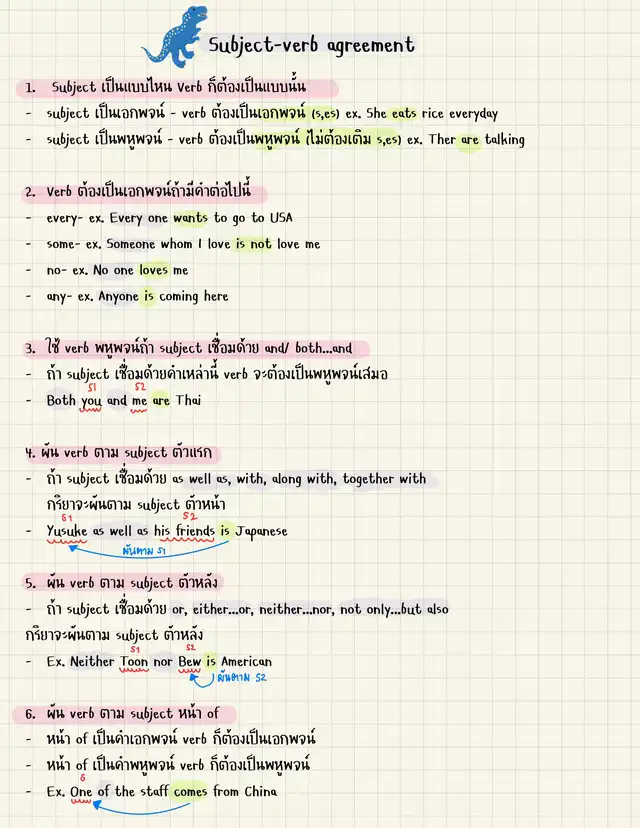 Subject-verb agreement
1. Subject เป็นแบบไหน Verb ก็ต้องเป็นแบบนั้น
- subject เป็นเอกพจน์ - verb ต้องเป็นเอกพจน์ (s,es) ex. She eats rice everyday
- subject เป็นพหูพจน์ - verb ต้องเป็นพหูพจน์ (ไม่ต้องเติม s,es) ex. Ther are talking
2. Verb ต้องเป็นเอกพจน์ถ้ามีคำต่อไปนี้
- every- ex. Every one wants to go to USA
- some- ex. Someone whom I love is not love me
- no- ex. No one loves me
- any- ex. Anyone is coming here
3. ใช้ verb พหูพจน์ถ้า subject เชื่อมด้วย and/ both...and
- ถ้า subject เชื่อมด้วยคำเหล่านี้ verb จะต้องเป็นพหูพจน์เสมอ
S1 S2
- Both you and me are Thai
4. ผัน verb ตาม subject ตัวแรก
- ถ้า subject เชื่อมด้วย as well as, with, along with, together with
กริยาจะผันตาม subject ตัวหน้า
S1 S2
- Yusuke as well as his friends is Japanese
ผันตาม S1
5. ผัน verb ตาม subject ตัวหลัง
- ถ้า subject เชื่อมด้วย or, either...or, neither...nor, not only...but also
กริยาจะผันตาม subject ตัวหลัง
S1 S2
- Ex. Neither Toon nor Bew is American
ผันตาม S2
6. ผัน verb ตาม subject หน้า of
- หน้า of เป็นคำเอกพจน์ verb ก็ต้องเป็นเอกพจน์
- หน้า of เป็นคำพหูพจน์ verb ก็ต้องเป็นพหูพจน์
S
- Ex. One of the staff comes from China